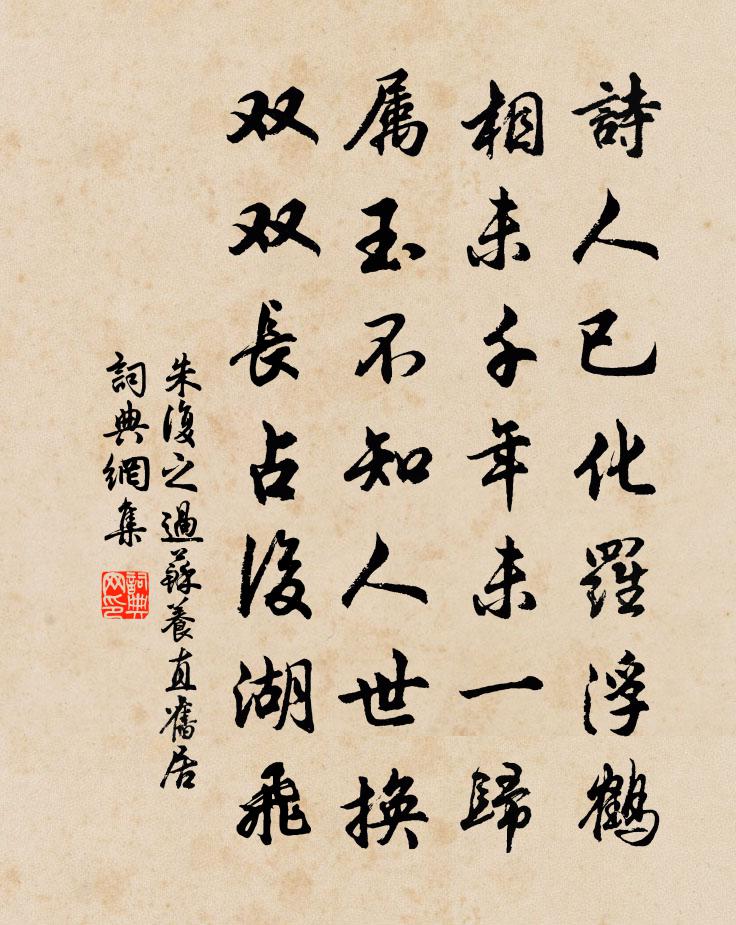 詩人已化羅浮鶴
相未千年未一歸
属玉不知人世換
双双長占後湖飛
朱復之過蘇養直舊居
詞典網集
詞典网印